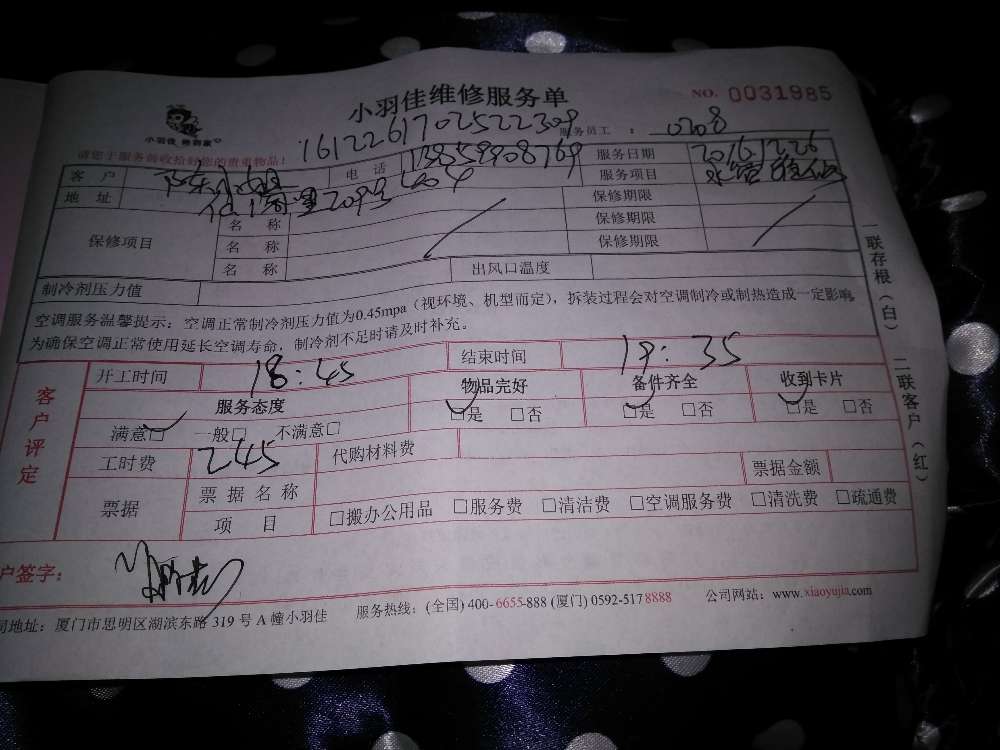 小羽佳维修服务单
NO. 0031985
小羽佳
1612261702522309
服务员工 : 0208
请您于服务前收拾好您的贵重物品!
客户 电话 13859908769 服务日期 20161226
地址 209号 服务项目 水管维修
保修项目 名称 保修期限
名称 保修期限
名称 保修期限
制冷剂压力值 出风口温度
空调服务温馨提示:空调正常制冷剂压力值为0.45mpa(视环境、机型而定),拆装过程会对空调制冷或制热造成一定影响,
为确保空调正常使用延长空调寿命,制冷剂不足时请及时补充。
客户评定
开工时间 18:45 结束时间 19:35
服务态度 物品完好 备件齐全 收到卡片
满意□ 一般□ 不满意□ □是 □否 □是 □否 □是 □否
工时费 245 代购材料费 票据金额
票据 票据名称
项目 □搬办公用品 □服务费 □清洁费 □空调服务费 □清洗费 □疏通费
户签字:
司地址:厦门市思明区湖滨东路 319 号 A 幢小羽佳 服务热线:(全国) 400-6655-888 (厦门) 0592-5178888 公司网站:www.xiaoyujia.com
一联存根(白) 二联客户(红)